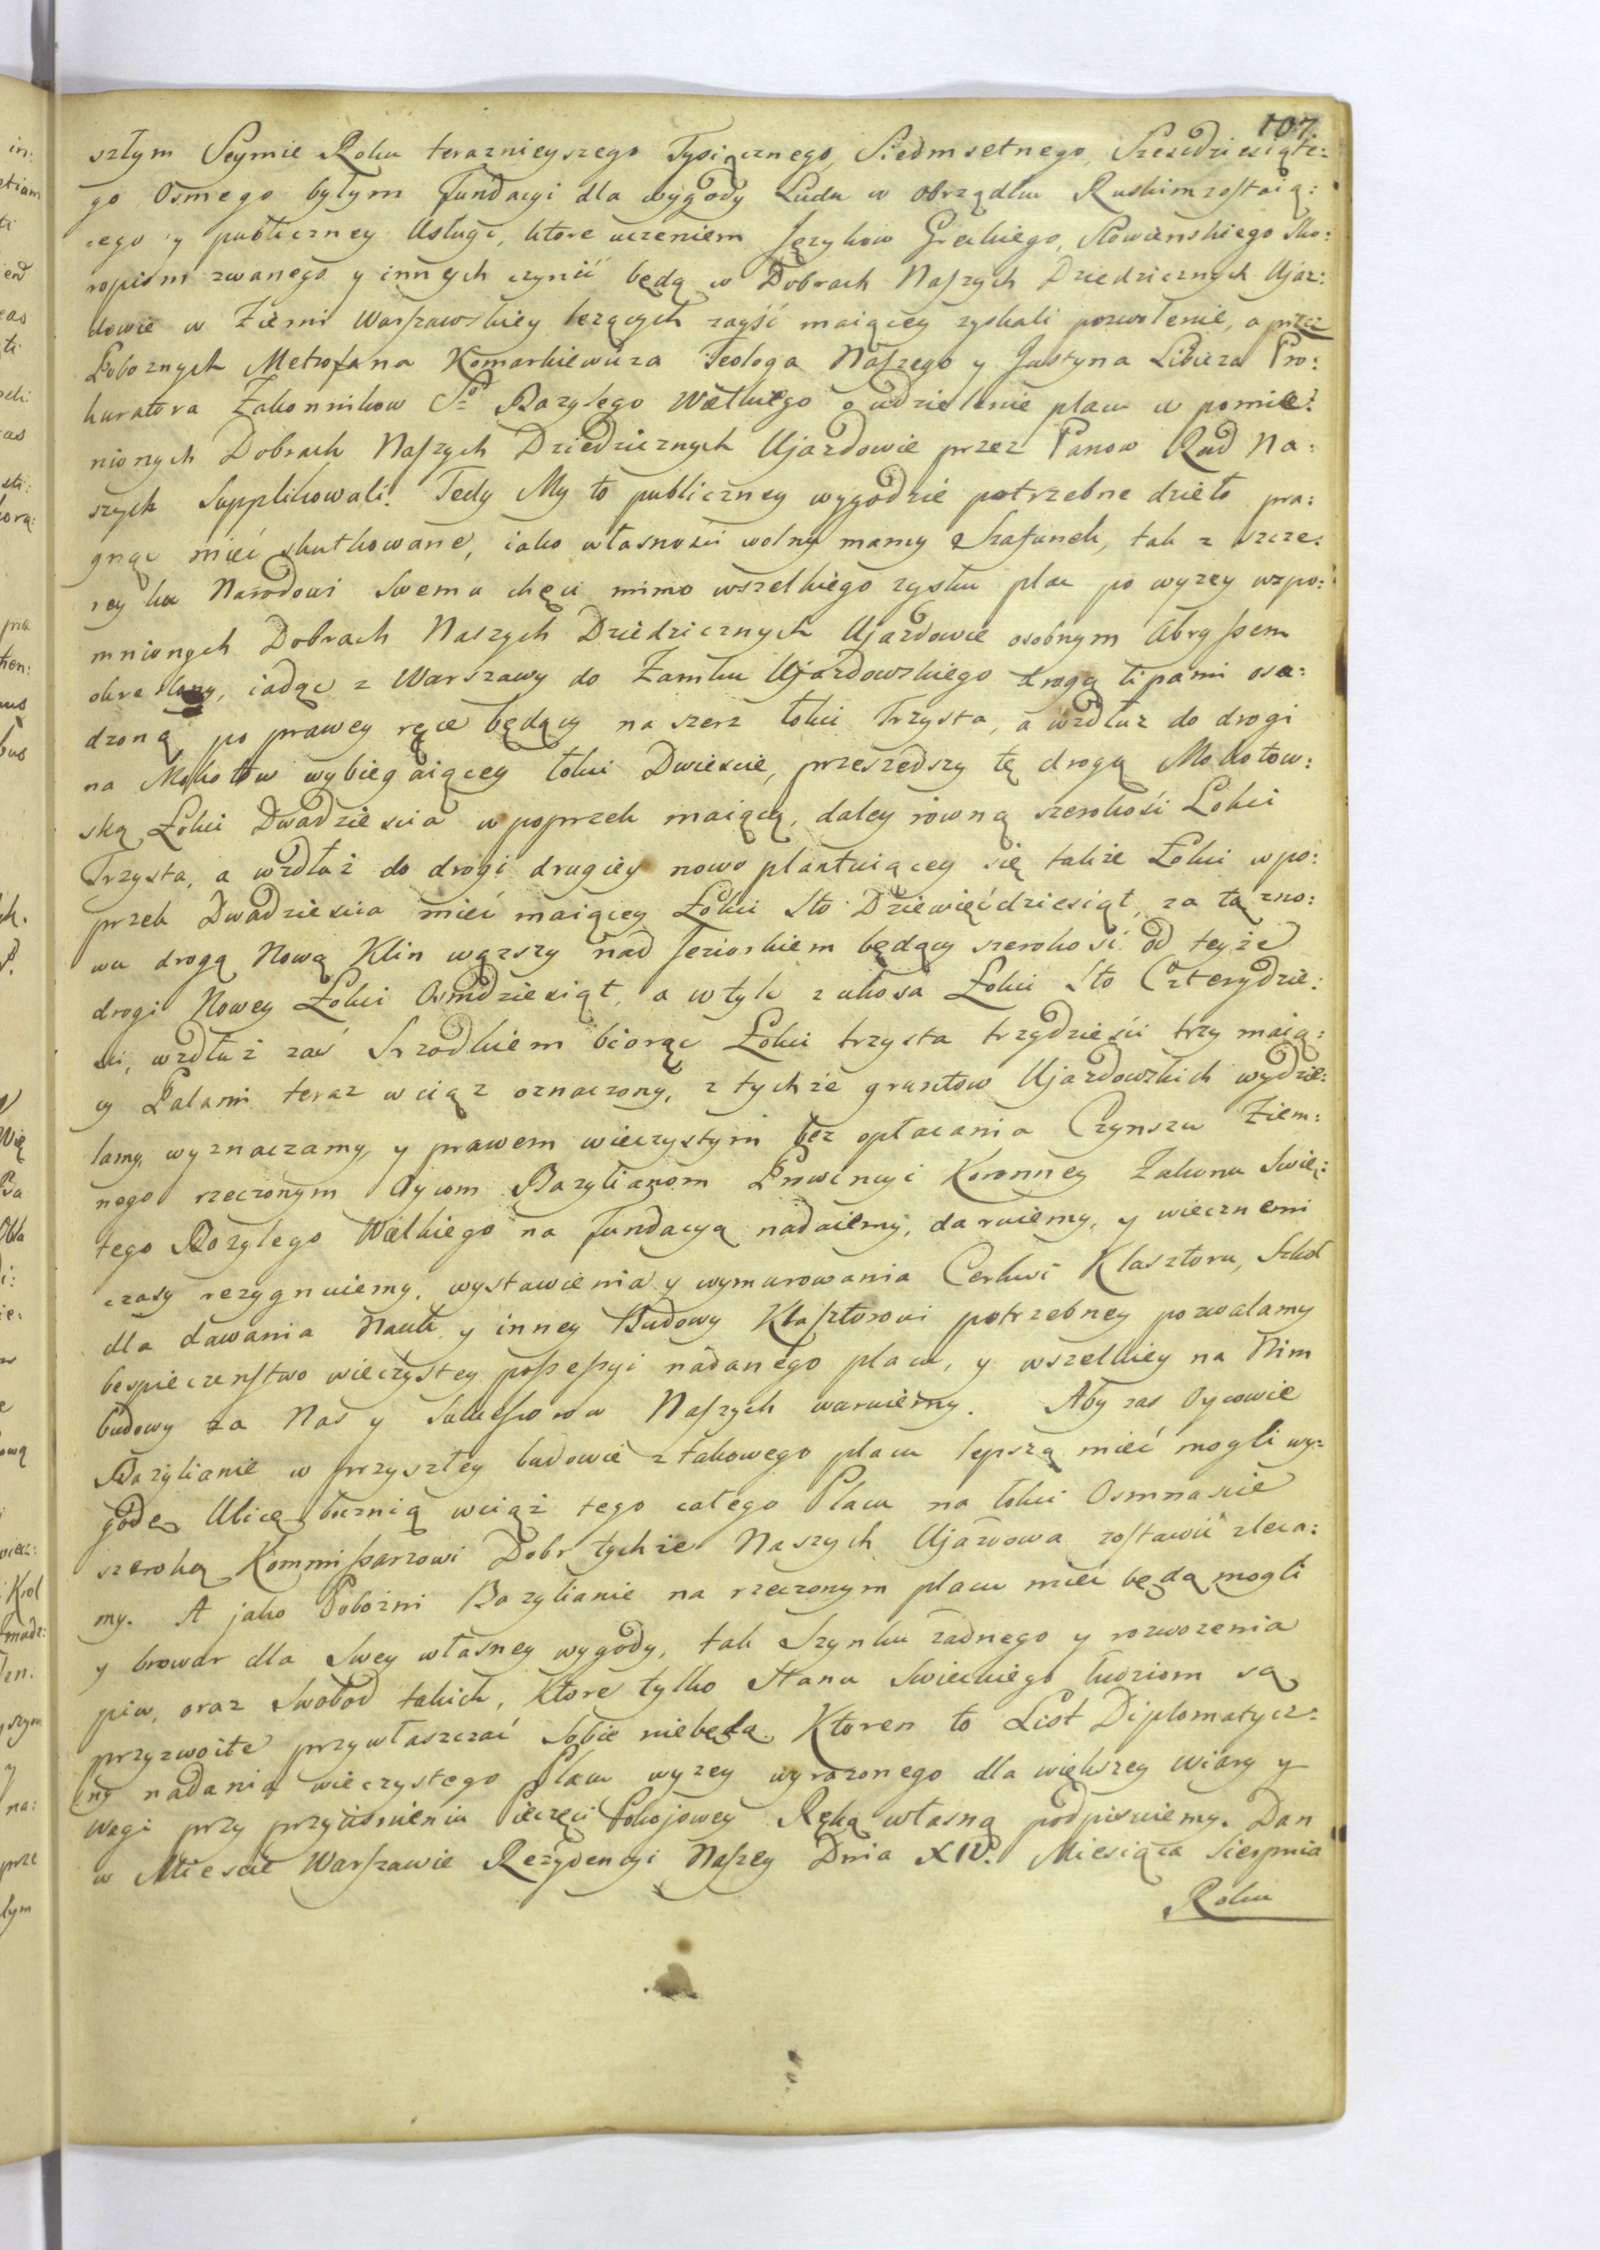 107.
szłym Seymie Roku teraznieyszego Tysiącznego, Siedmsetnego, Szescdziesiąte:
go Osmego byłym Fundacyi dla wygody Ludu w obrządku Ruskim zostaią:
cego y publiczney Usługi, ktore uczeniem Języków Greckiego, Słowienskiego Sko:
ropism zwanego y innych czynić będą w Dobrach Naszych Dziedzicznych Ujaz:
dowie w Ziemi Warszawskiey leżących zayść maiącey zyskali pozwolenie, a przez
Pobożnych Metrofana Komarkiewicza Teologa Naszego y Justyna Libicza Pro:
kuratora Zakonników Sgo Bazylego Wielkiego o udzielenie placu w pomie:
nionych Dobrach Naszych Dziedzicznych Ujazdowie przez Panow Rad Na:
szych Supplikowali. Tedy My to publiczney wygodzie potrzebne dzieło pra:
gnąc mieć skutkowane, iako własności wolny mamy Szafunek, tak z szcze:
rey ku Narodowi Swemu chęci mimo wszelkiego zysku plac po wyzey wspo:
mnionych Dobrach Naszych Dziedzicznych Ujazdowie osobnym Abryssem
okreslony, iadąc z Warszawy do Zamku Ujazdowskiego drogą lipami osa:
dzoną po prawey ręce będący na szerz łokci Trzysta, a wzdłuz do drogi
na Mokotow wybiegaiącey łokci Dwiescie, przeszedszy tę drogę Mokotow:
ską Łokci Dwadziescia w poprzek maiącą, daley rowną szerokości Łokci
Trzysta, a wzdłuż do drogi drugiey nowo plantuiącey się także Łokci wpo:
przek Dwadziescia mieć maiącey Łokci Sto Dziewięćdziesiąt, za tą zno:
wu drogą Nową Klin węzszy nad Jeziorkiem będący szerokości od teyże
drogi Nowey Łokci Osmdziesiąt, a w tyle z ukosa Łokci Sto Czterydzie:
sci, wzdłuż zaś Srzodkiem biorąc Łokci trzysta trzydzieści trzy maią:
cy Palami teraz wciąz oznaczony, z tychże gruntow Ujazdowskich wydzie:
lamy, wyznaczamy, y prawem wieczystym bez opłacania Czynszu Ziem:
nego rzeczonym Oycom Bazylianom Prowincyi Koronney Zakonu Swię:
tego Bazylego Wielkiego na Fundacyą nadaiemy, daruiemy, y wiecznemi
czasy rezygnuiemy, wystawienia y wymurowania Cerkwi Klasztoru, Szkoł
dla dawania Nauk y inney Budowy Klasztorowi potrzebney pozwalamy
bespieczenstwo wieczystey possessyi nadanego placu, y wszelkiey na Nim
budowy za Nas y Sukcessorow Naszych waruiemy. Aby zas Oycowie
Bazylianie w przyszłey budowie z takowego placu lepszą mieć mogli wy:
godę Ulicę boczną wciąż tego całego Placu na łokci Osmnascie
szeroką Kommissarzowi Dobr tychże Naszych Ujazdowa zostawić zleca:
my. A jako Pobożni Bazylianie na rzeczonym placu mieć będą mogli
y browar dla Swey własney wygody, tak Szynku żadnego y rozwozenia
piw, oraz Swobod takich, ktore tylko Stanu Swieckiego ludziom są
przyzwoite przywłaszczać Sobie niebędą. Ktoren to List Diplomatycz:
ny nadania wieczystego Placu wyzey wyrazonego dla większey wiary y
wagi przy przyciśnieniu Pieczęci Pokojowey Ręką własną podpisuiemy. Dan
w Miescie Warszawie Rezydencyi Naszey Dnia XIV. Miesiąca Sierpnia
Roku